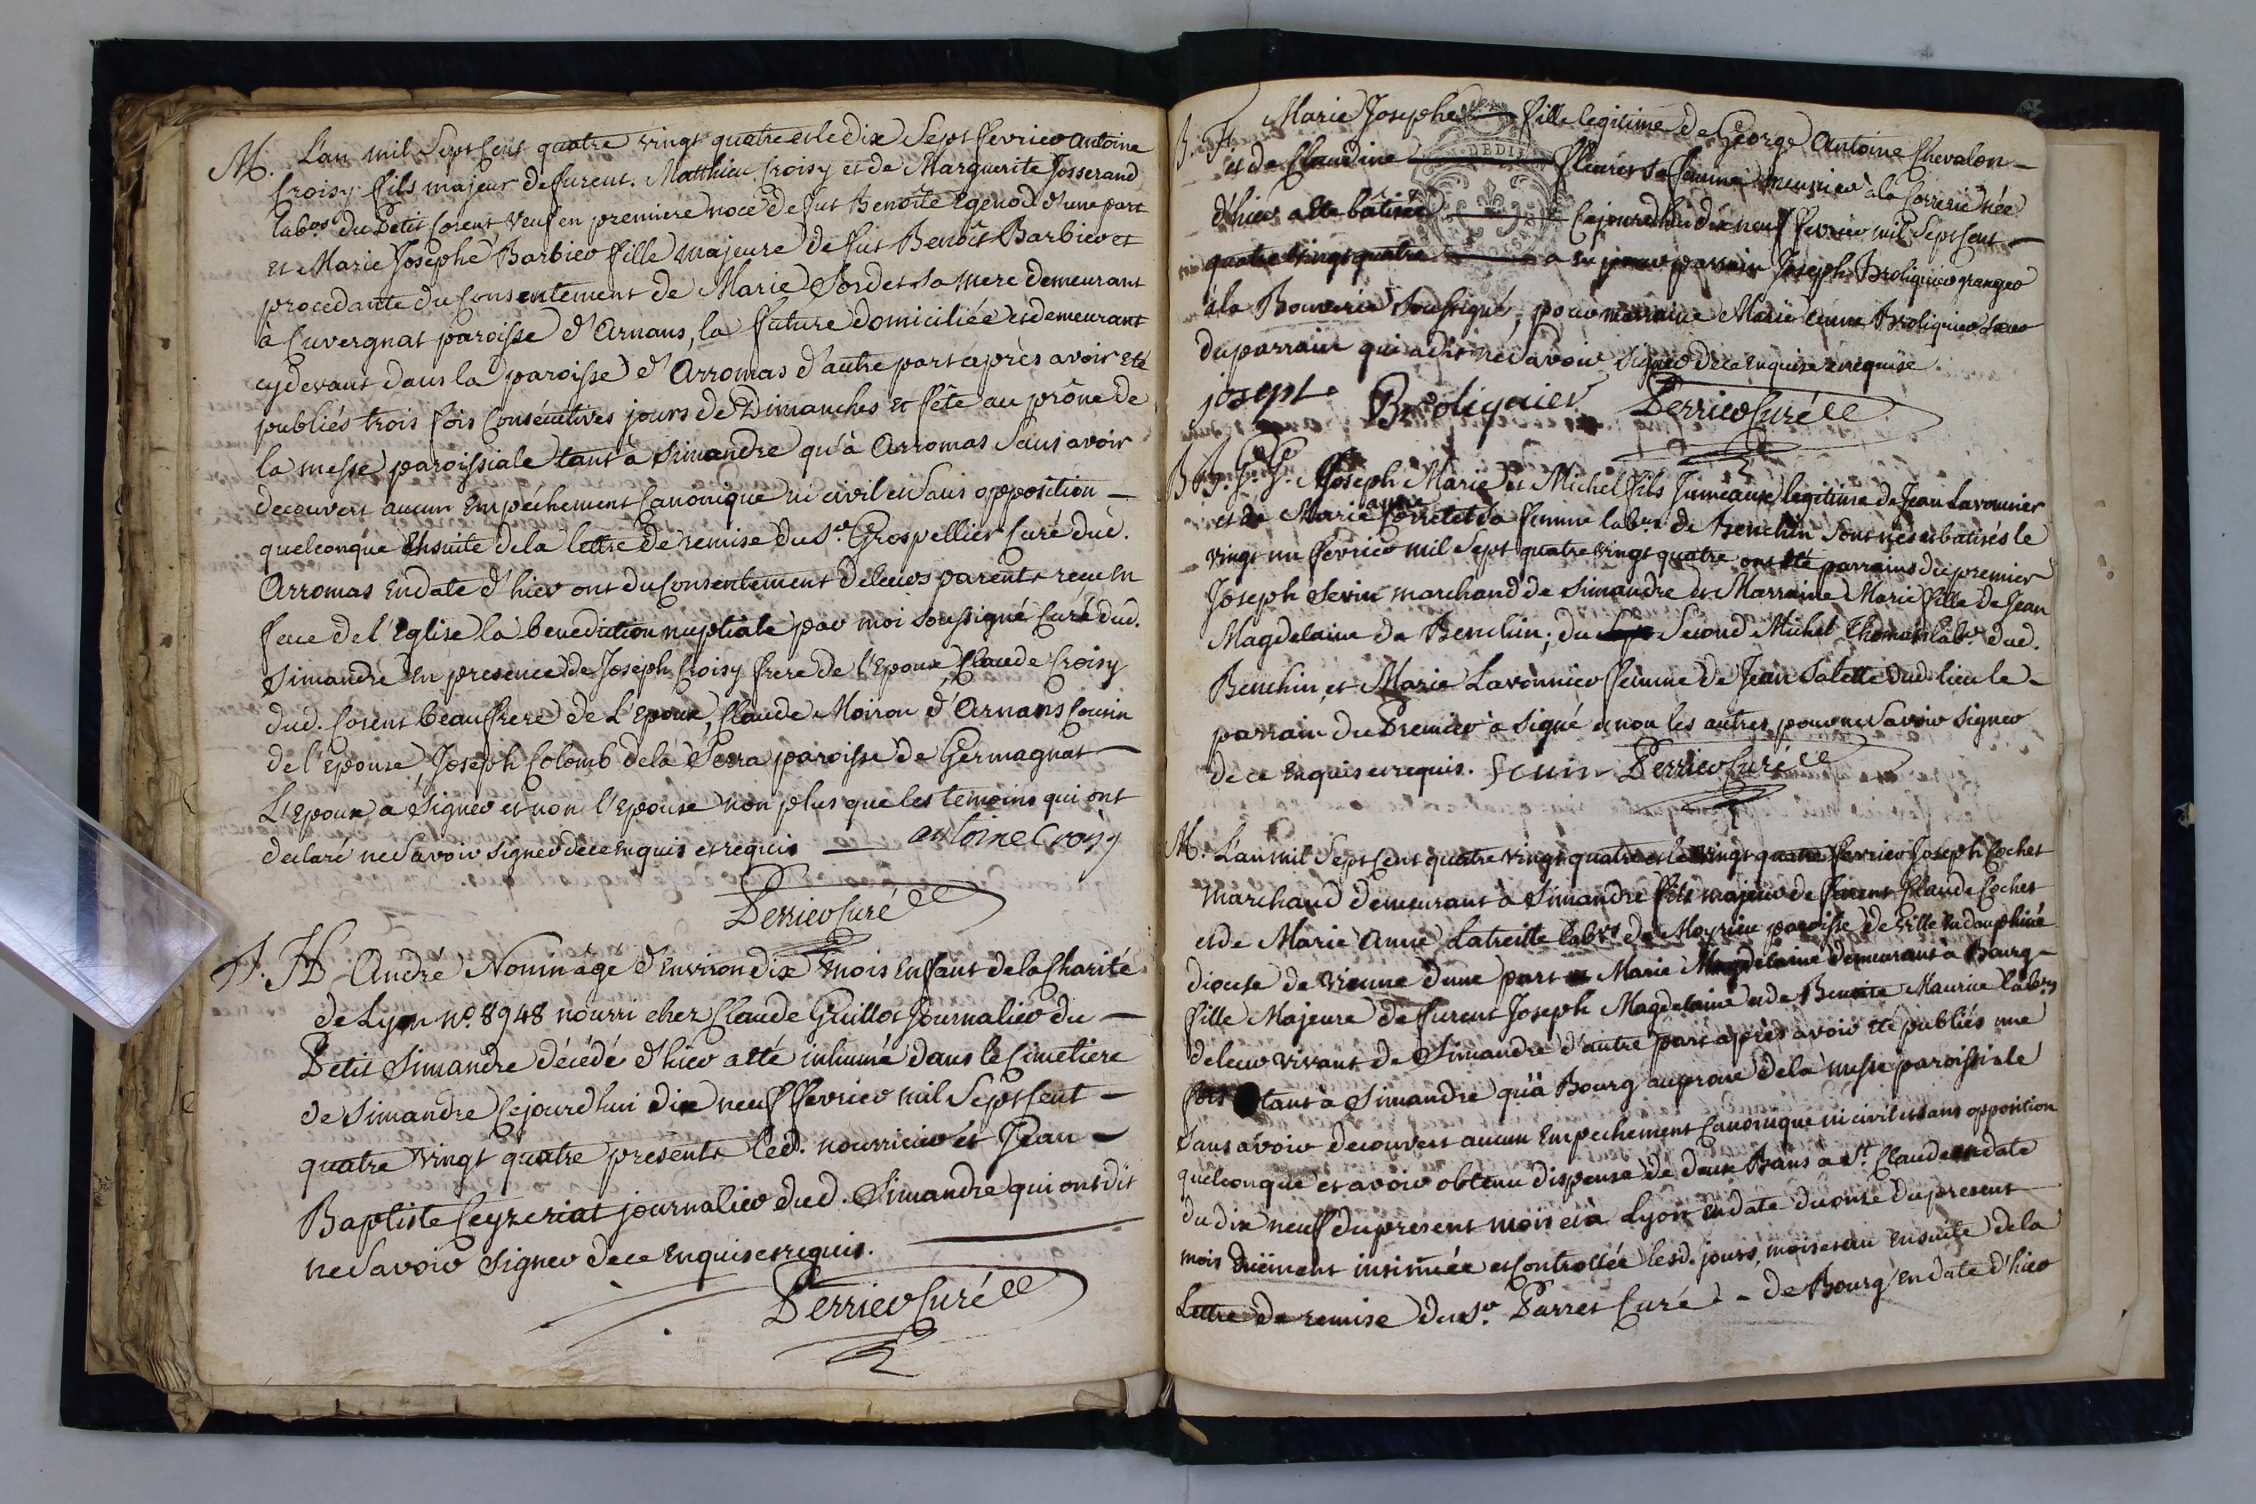 M. L'an mil Sept Cent quatre vingt quatre et le dix Sept fevrier Antoine
Croisy fils majeur de furent Matthieu Croisy et de Marguerite Josserand
labrs du Petit Corent veuf en premiere noce de fut Benoîte Egenod d'une part
et Marie Josephe Barbier fille majeure de fut Benoît Barbier et
procedante du Consentement de Marie Sordet sa mere demeurant
à Cuvergnat paroisse d'Arnans, la future domiciliée et demeurant
cydevant dans la paroisse d'Arromas d'autre part après avoir eté
publiés trois fois Consécutives jours de Dimanches et fête au prône de
la messe paroissiale tant à Simandre qu'à Arromas Sans avoir
decouvert aucun Empêchement Canonique ni civil et Sans opposition
quelconque Ensuite de la lettre de remise du Sr. Grospellier Curé dud.
Arromas en date d'hier ont du Consentement de leurs parents reçu en
face de l'Eglise la benediction nuptiale par moi Soussigné Curé dud.
Simandre en presence de Joseph Croisy frere de l'Epoux, Claude Croisy
dud. Corent beaufrere de L'Epoux, Claude Moiron d'Arnans Cousin
de l'Epouse, Joseph Colomb de la Serra paroisse de Germagnat
L'Epoux a Signer et non l'Epouse non plus que les temoins qui ont
declaré ne Savoir signer de ce enquis et requis antoine Croisy
Perrier Curé
S. H André Nomin âgé d'environ dix mois Enfant de la Charité
de Lyon no. 8948 nourri chez Claude Guillot Journalier du
Petit Simandre décédé d'hier a eté inhumé dans le Cimetiere
de Simandre Cejourd'hui dix neuf fevrier mil Sept Cent
quatre vingt quatre presents led. nourricier et Jean
Baptiste Ceyzeriat journalier dud. Simandre qui ont dit
ne Savoir Signer de ce Enquis et requis.
Perrier Curé
B. F. Marie Josephe fille legitime de George Antoine Chevalon
et de Claudine Fleuret Sa femme meunier à la Correrie née
d'hier a eté bâtisée Cejourd'hui dix neuf fevrier mil Sept Cent
quatre vingt quatre a eu pour parrain Joseph Broliquier granger
à la Bouverie Soussigné, pour marraine Marie Broliquier Sœur
du parrain qui a dit ne Savoir Signer de ce Enquise et requise.
joseph Broliquier Perrier Curé
B B. G. G. Joseph Marie et Michel fils Jumeaux legitime de Jean Lavonnier
et de Marie anne Corretet Sa femme labrs de Benchin Sont nés et batisés le
vingt un fevrier mil Sept quatre vingt quatre ont eté parrains du premier
Joseph Sevin marchand de Simandre et Marraine Marie fille de Jean
Magdelaine de Benchin; du Second Michel Thomas labr. dud.
Benchin, et Marie Lavonnier femme de Jean Salette dud. lieu le
parrain du Premier à Signé et non les autres pour ne Savoir Signer
de ce Enquis et requis. Sevin Perrier Curé
M. L'an mil Sept Cent quatre vingt quatre et le vingt quatre fevrier Joseph Cochet
Marchand demeurant à Simandre fils majeur de furent Claude Cochet
et de Marie Anne Latreille labrs de Moyrieu paroisse de ville en dauphiné
diocese de vienne d'une part et Marie Magdelaine demeurant à Bourg
fille Majeure de furent Joseph Magdelaine et de Benoite Maurice labrs
de leur vivant de Simandre d'autre part après avoir eté publiés une
fois tant à Simandre qu'à Bourg au prone de la messe paroissiale
Sans avoir decouvert aucun Empechement Canonique ni civil et sans opposition
quelconque et avoir obtenu dispense de deux Bans a St. Claude en date
du dix neuf du present mois et à Lyon en date du onze du present
mois duëment insinuée et Controllée lesd. jours, mois et an ensuite de la
Lettre de remise du Sr. Parret Curé de Bourg en date d'hier